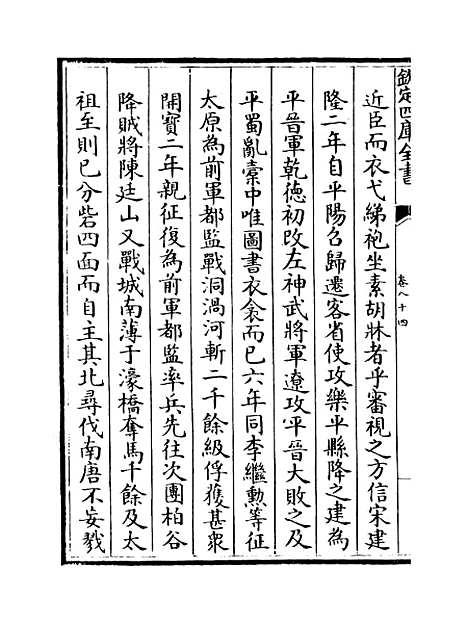 欽定四庫全書
卷八十四
近臣而衣弋綈袍坐素胡牀者乎審視之方信宋建
隆二年自平陽召歸遷客省使攻樂平縣降之建為
平晉軍乾德初改左神武將軍遼攻平晉大敗之及
平蜀亂槖中唯圖書衣衾而已六年同李繼勲等征
太原為前軍都監戰洞渦河斬二千餘級俘獲甚衆
開寶二年親征復為前軍都監率兵先往次團柏谷
降賊將陳廷山又戰城南薄于濠橋奪馬千餘及太
祖至則已分砦四面而自主其北尋伐南唐不妄戮